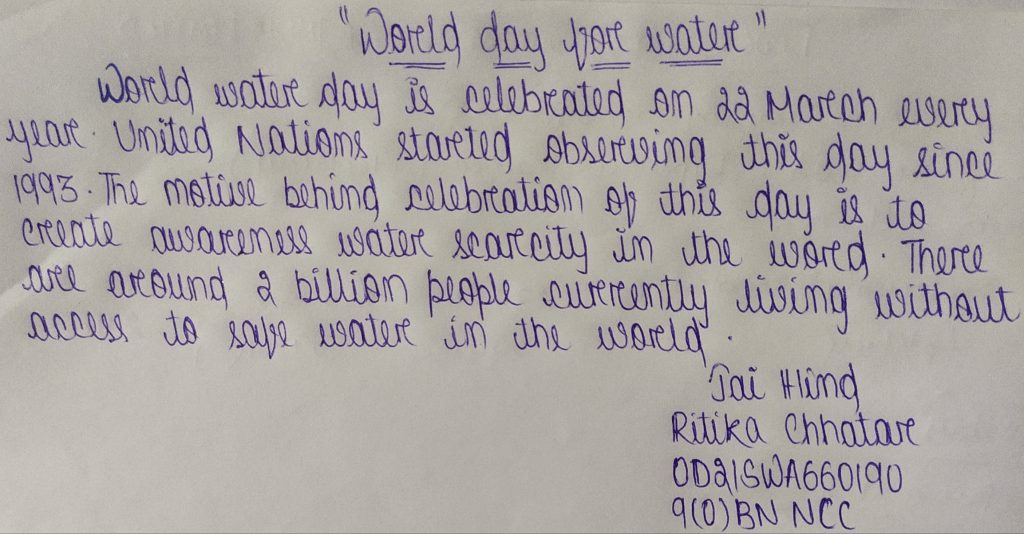 "World day for water"
World water day is celebrated on 22 March every
year. United Nations started observing this day since
1993. The motive behind celebration of this day is to
create awareness water scarcity in the word. There
are around 2 billion people currently living without
access to safe water in the world.
Jai Hind
Ritika Chhatare
OD21SWA660190
9(O)BN NCC